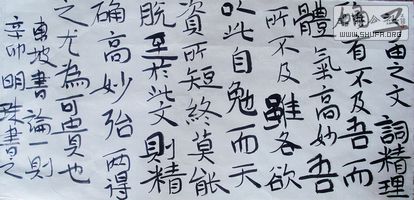 由之文詞精理
有不及吾而
體氣高妙吾
所不及雖各欲
以此自勉而天
資所短終莫能
脫至於此文則精
确高妙殆兩得
之尤為可貴也
東坡書論一則
辛卯明珠書之
WWW.SHUFA.ORG